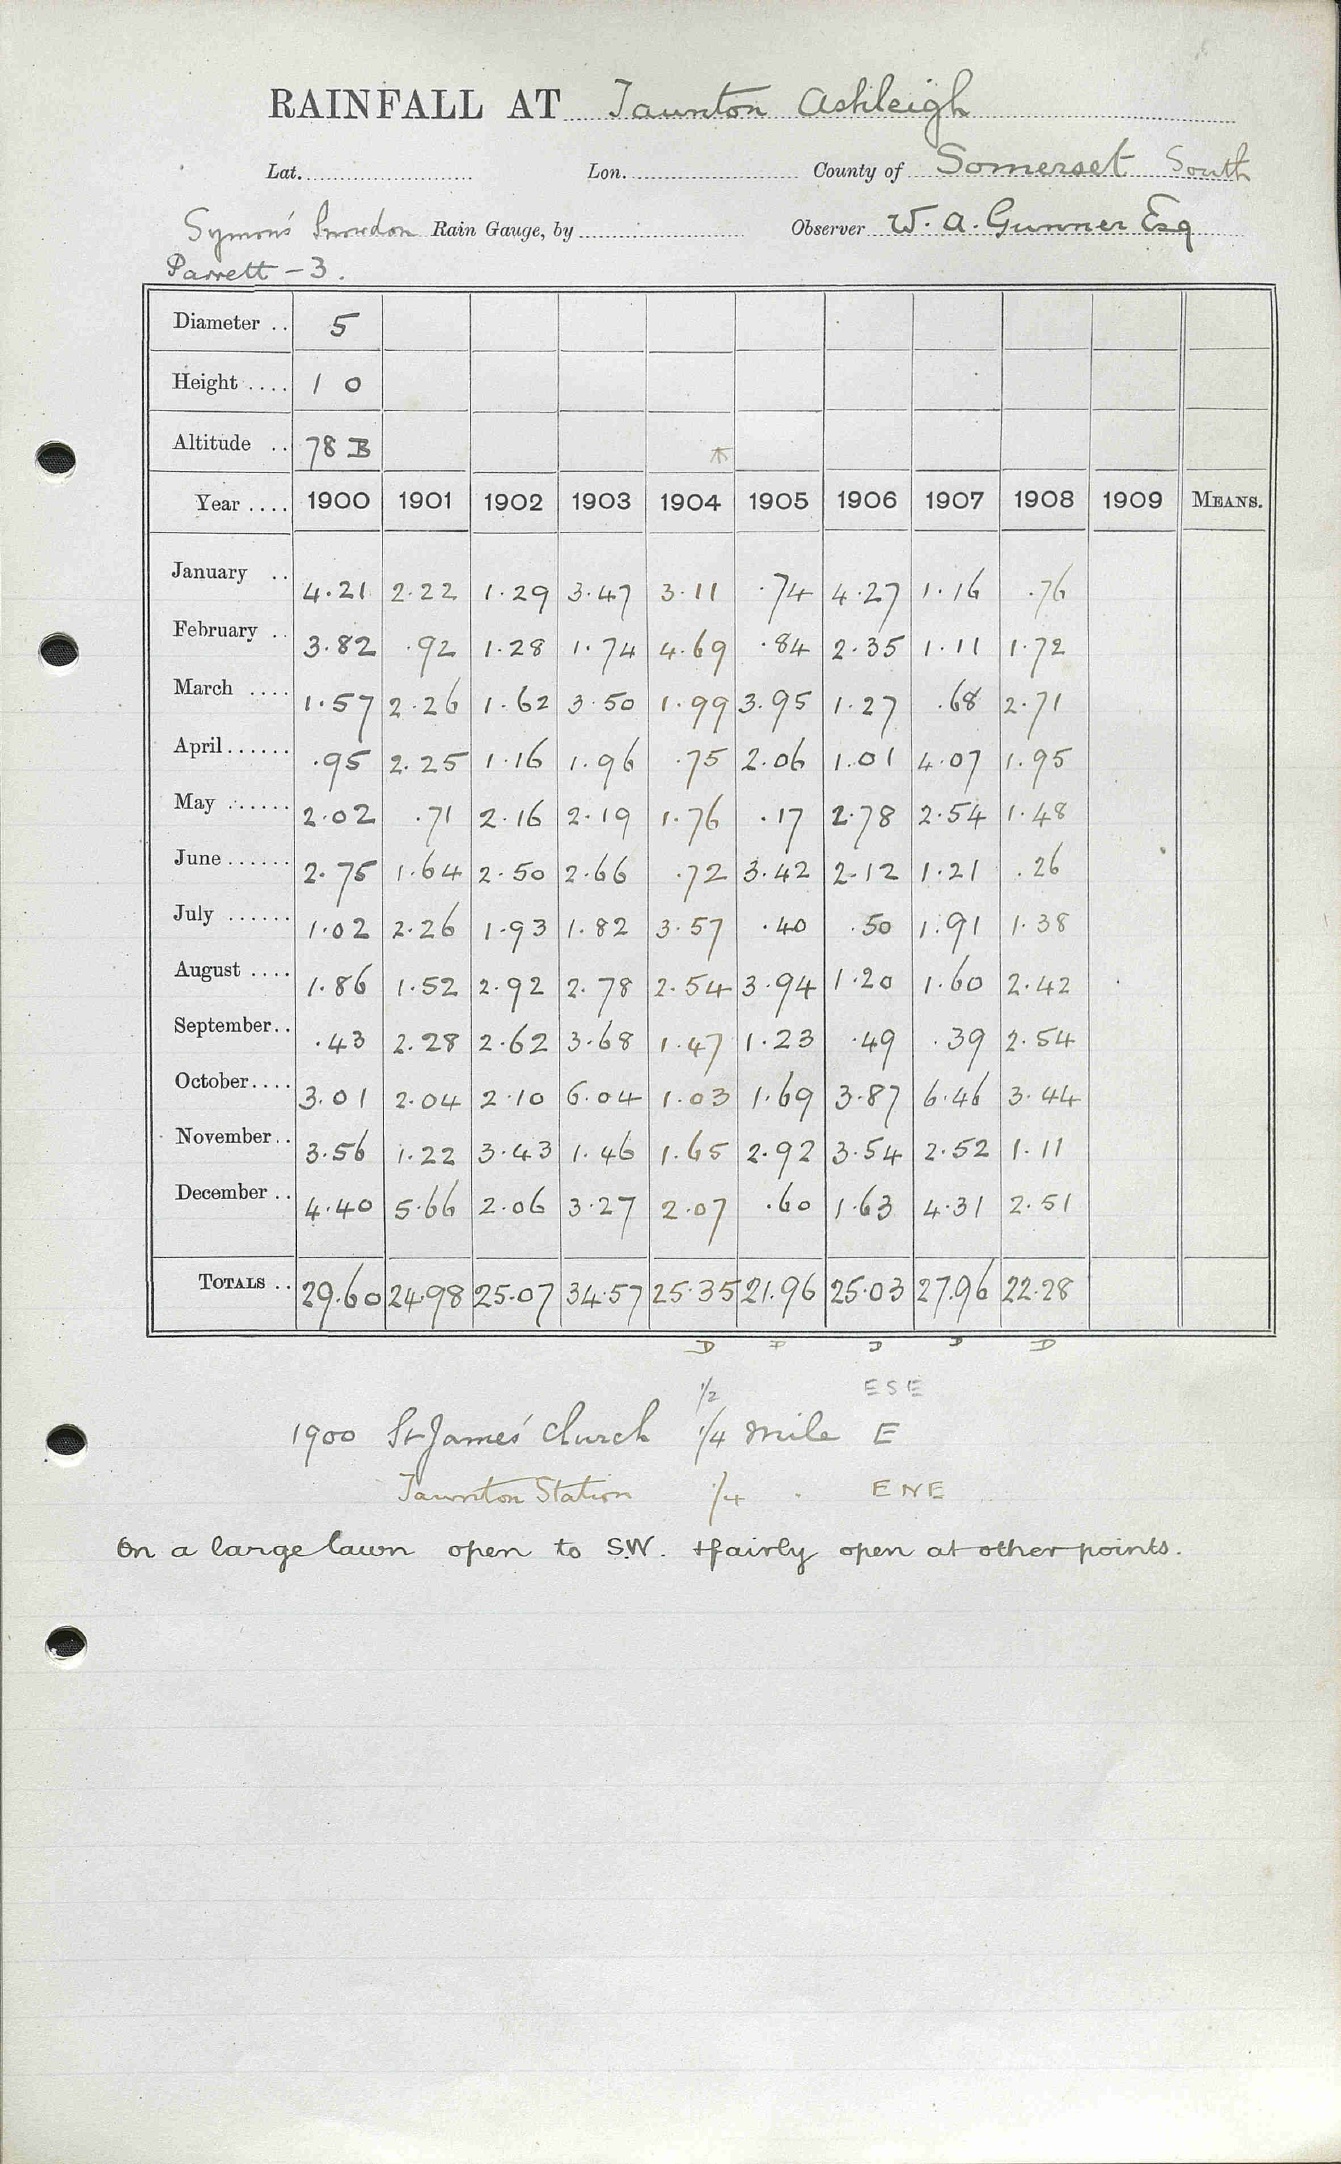 RAINFALL AT Taunton Ashleigh
Lat. Lon. County of Somerset South
Symons' Snowdon Rain Gauge, by Observer W. A. Gunner Esq
Parrett - 3.
Diameter .. 5
Height .... 1 0
Altitude .. 78 B
Year .... 1900 1901 1902 1903 1904 1905 1906 1907 1908 1909 MEANS.
January .. 4.21 2.22 1.29 3.47 3.11 .74 4.27 1.16 .76
February .. 3.82 .92 1.28 1.74 4.69 .84 2.35 1.11 1.72
March .... 1.57 2.26 1.62 3.50 1.99 3.95 1.27 .68 2.71
April...... .95 2.25 1.16 1.96 .75 2.06 1.01 4.07 1.95
May ...... 2.02 .71 2.16 2.19 1.76 .17 2.78 2.54 1.48
June ...... 2.75 1.64 2.50 2.66 .72 3.42 2.12 1.21 .26
July ...... 1.02 2.26 1.93 1.82 3.57 .40 .50 1.91 1.38
August .... 1.86 1.52 2.92 2.78 2.54 3.94 1.20 1.60 2.42
September.. .43 2.28 2.62 3.68 1.47 1.23 .49 .39 2.54
October.... 3.01 2.04 2.10 6.04 1.03 1.69 3.87 6.46 3.44
November.. 3.56 1.22 3.43 1.46 1.65 2.92 3.54 2.52 1.11
December .. 4.40 5.66 2.06 3.27 2.07 .60 1.63 4.31 2.51
TOTALS .. 29.60 24.98 25.07 34.57 25.35 21.96 25.03 27.96 22.28
D D D D D
1/2 ESE
1900 St James' Church 1/4 mile E
Taunton Station 1/4 " ENE
On a large lawn open to S.W. & fairly open at other points.